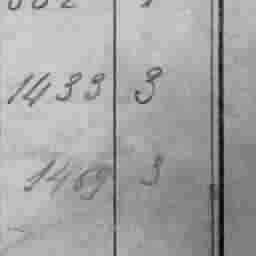 1433 3
1469 3